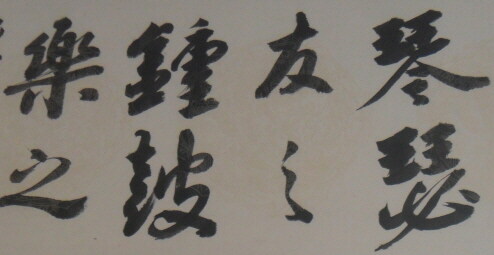 琴瑟
友之
鍾鼓
樂之